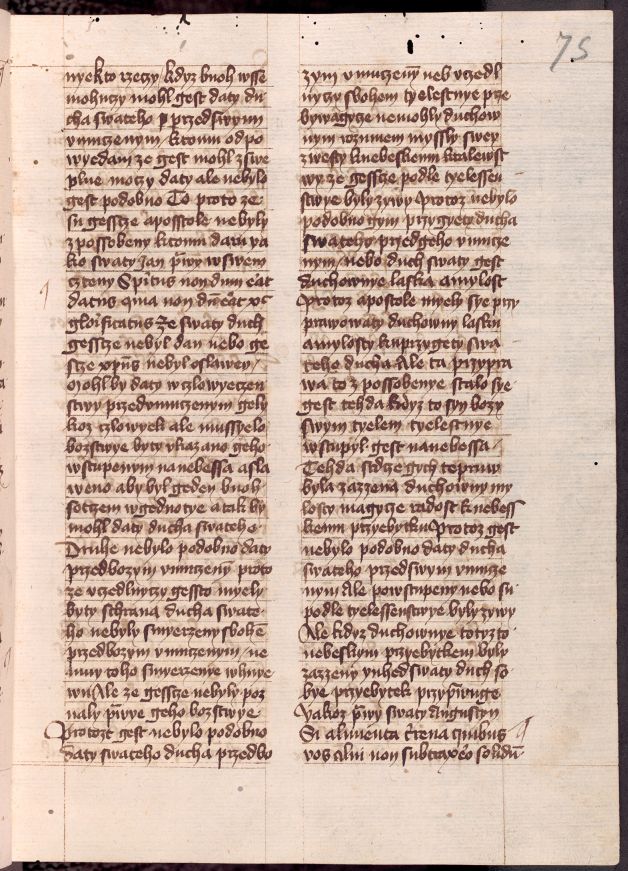 75
nyekto rzeczy kdyz buoh wsse
mohuczy mohl gest daty du
cha swateho przedswym
vmuczenym / ktomu odpo
wyedam ze gest mohl zswe
plne moczy daty ale nebylo
gest podobno To proto ze
su gessczе aposstole nebyly
zpossobeny ktomu daru ya
ko swaty Jan prwy w swem
cztenу Spiritus non dum erat
datus quia non dum erat xc
glorificatus Ze swaty duch
gesscze nebyl dan nebo ge
scze xpus nebyl oslawen
mohl by daty w czlowyeczen
stwy przedvmuczenym gely
koz czlowyek ale mussyelo
bozstwye byty vkazano geho
wstupenym na nebessa a sla
weno aby byl geden buoh
sotczem w gednotye a tak by
mohl daty ducha swateho
Druhe nebylo podobno daty
przedbozym vmuczenym proto
ze vczedlnyczy gessto myely
byty schrana ducha swate
ho nebyly smyerzeny sbohem
przedbozym vmuczenym / ne
amy toho smyerzenye
Ale ze gesscze nebyly poz
naly prwye geho bozstwye
Protoz gest nebylo podobno
daty swateho ducha przedbo
zym vmuczenym neb vczedl
nyczy sbohem tyelestnye prze
bywagycze nemohly duchow
nym rozumem myssly swey
zwesty knebeskemu kralewst
wy ze gesscze podle tyelessen
stwye byly zywy Protoz nebylo
podobno gym przygyety ducha
swateho przedgeho vmucze
nym / nebo duch swaty gest
duchownye laska a mylost
Protoz apostole myely sye przy
prawowaty duchowny lasku
a mylosty kuprzygety swa
teho ducha Ale ta przypra
wa to zpossobenye stalo sye
gest tehda kdyz to syn bozy
swym tyelem tyelestnye
wstupyl gest na nebessa
Tehda srdcze gych tepruw
byla zazzena duchowny my
losty magycze zadost knebess
kemu przyebytku Protoz gest
nebylo podobno daty ducha
swateho przedswym vmucze
nym Ale powstupeny nebo su
podle tyelessenstwye byly zywy
Ale kdyz duchownye totyzto
nebeskym przyebytkem byly
zazzeny ynhed swaty duch so
bye przyebytek przyprawuge
Yakoz prwy swaty Augustyn
Si alimenta quibus
vos alui non subtraxero solidum